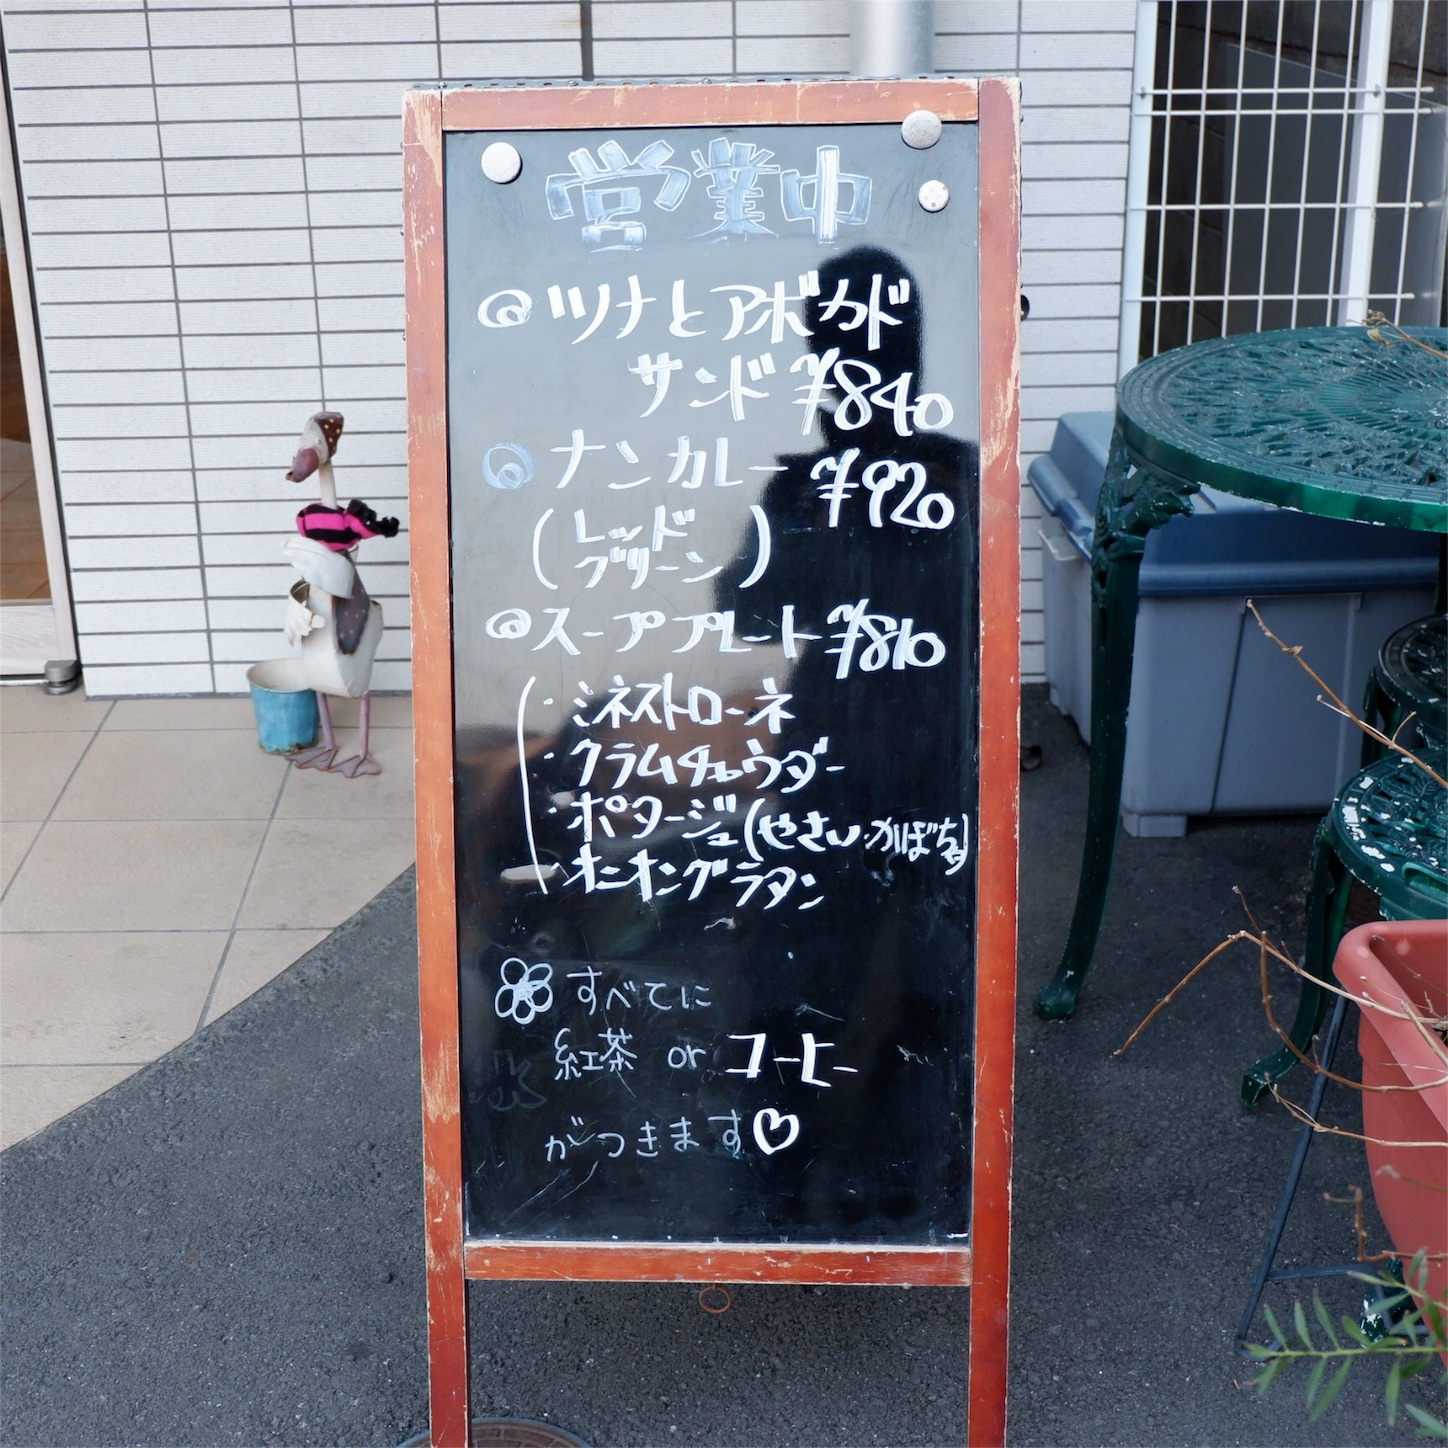 営業中
ツナとアボカド
サンド ¥840
ナンカレー ¥920
(レッド
グリーン)
スーププレート ¥810
・ミネストローネ
・クラムチャウダー
・ポタージュ(やさい・かぼちゃ)
・オニオングラタン
すべてに
紅茶 or コーヒー
がつきます♡